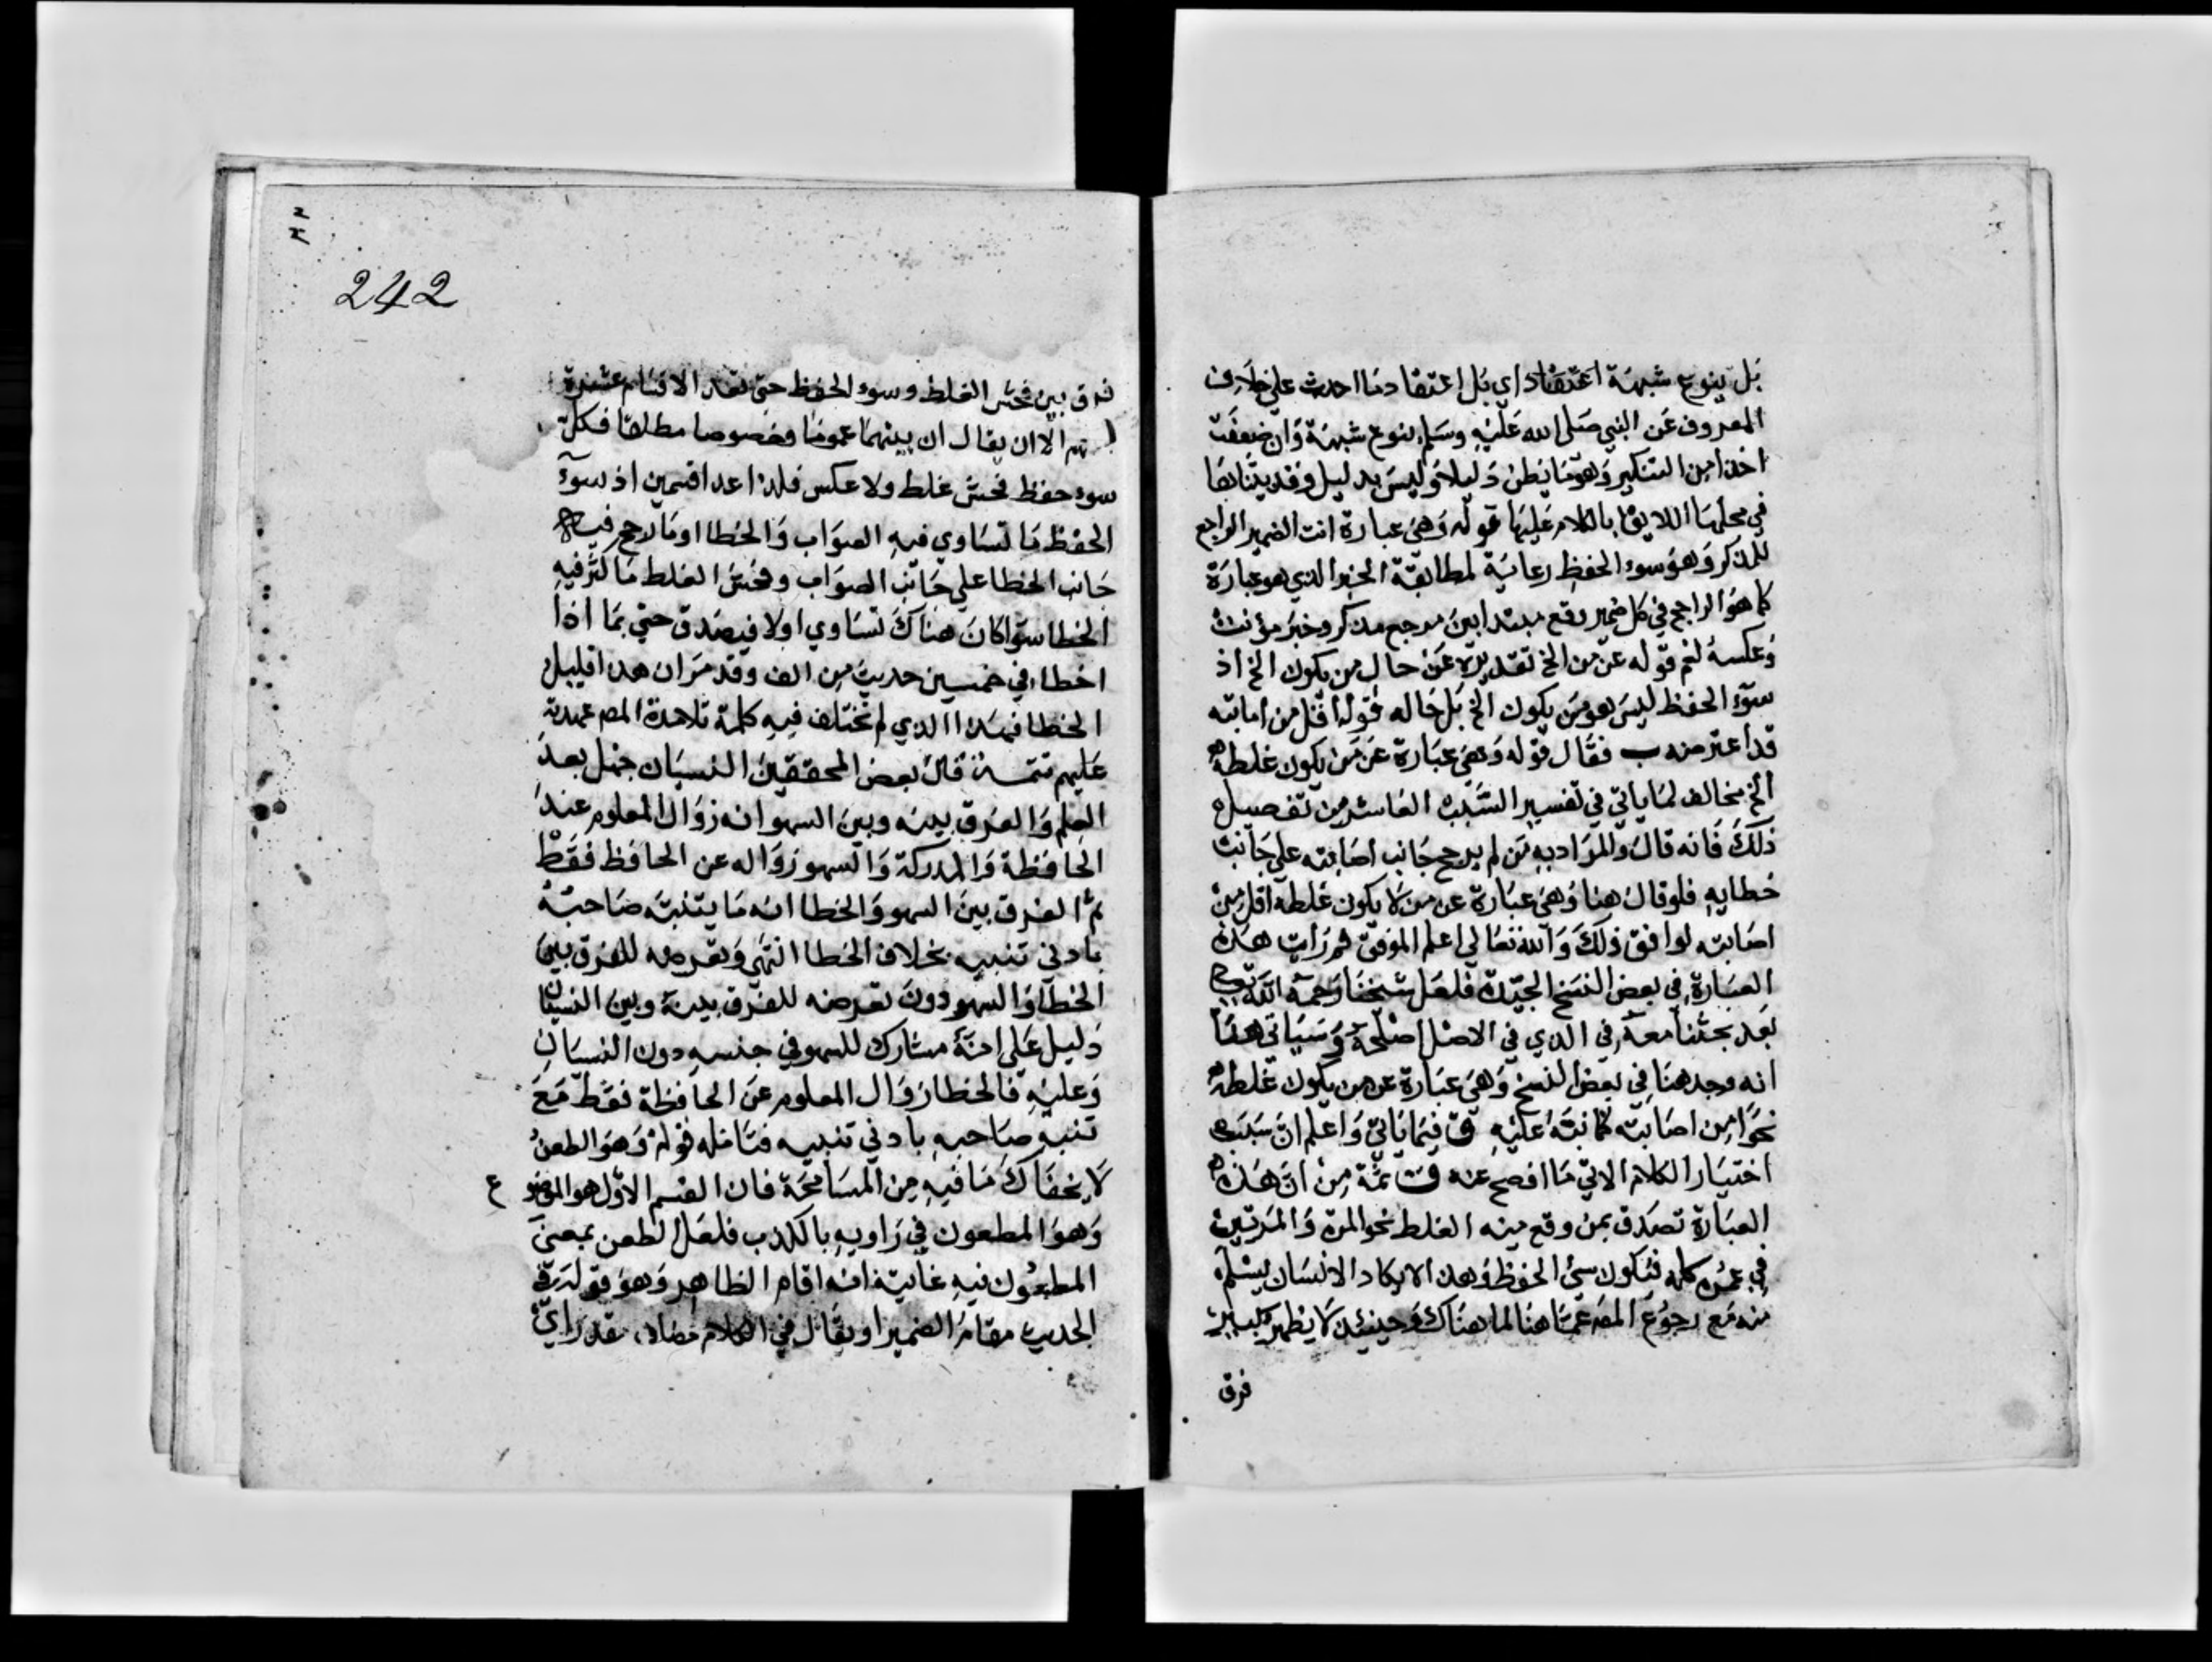 بل بنوع شبهة اعتقاد اي بل اعتقاد ما احدث علي خلاف
المعروف عن النبي صلي الله عليه وسلم بنوع شبهة وان ضعفت
اخذا من التنكير وهو ما يظن دليلا وليس بدليل وقد
في محلها اللايق بالكلام عليها قوله وهي عبارة انث الضمير الراجع
للمذكر وهو سوء الحفظ رعاية لمطابقة الخبر الذي هو عبارة
كما هو الراجح في كل ضمير وقع مبتدا بين مرجع مذكر وخبر مؤنث
وعكسه نعم قوله عن من الخ تقديره عن حال من يكون الخ اذ
سوء الحفظ ليس هو من يكون الخ بل حاله قوله اقل من اصابته
قد اعترضه ب فقال قوله وهي عبارة عن من يكون غلطه
الخ مخالف لما ياتي في تفسير السبب العاشر من تفصيل
ذلك فانه قال والمراد به من لم يرجح جانب اصابته علي جانب
خطايه فلو قال هنا وهي عبارة عن من لا يكون غلطه اقل من
اصابته لوافق ذلك والله تعالي اعلم الموفق ثم رايت هذه
العبارة في بعض النسخ الجيدة فلعل شيخنا رحمه الله
بعد بحثنا معه في الذي في الاصل اصلحه وسياتي هنا
انه وجد هنا في بعض النسخ وهي عبارة عن من يكون غلطه
نحوا من اصابته كما نبه عليه ق فيما ياتي واعلم ان سبب
اختيار الكلام الاتي ما افصح عنه ق ثمة من ان هذه
العبارة تصدق بمن وقع منه الغلط نحو المرة والمرتين
في عمره كله فيكون سئ الحفظ وهذا لا يكاد الانسان يسلم
منه مع رجوع المص عما هنا لما هناك وحينئذ لا يظهر كبير
فرق
242
فرق بين فحش الغلط وسوء الحفظ حتي تعد الاقسام عشرة
الا ان يقال ان بينهما عموما وخصوصا مطلقا فكل
سوء حفظ فحش غلط ولا عكس فلذا عدا قسمين اذ سوء
الحفظ ما تساوي فيه الصواب والخطا او ما رجح فيه
جانب الخطا علي جانب الصواب وفحش الغلط ما كثر فيه
الخطا سوا كان هناك تساوي اولا فيصدق حتي بما اذا
اخطا في خمسين حديث من الف وقد مر ان هذا قليل
الخطا فهذا الذي لم تختلف فيه كلمة تلامذة المص
عليهم تتمة قال بعض المحققين النسيان جهل بعد
العلم والفرق بينه وبين السهو انه زوال المعلوم عند
الحافظة والمدركة والسهو زواله عن الحافظ فقط
ثم الفرق بين السهو والخطا انه ما يتنبه صاحبه
بادني تنبيه بخلاف الخطا انتهي وتعرضه للفرق بين
الخطا والسهو دون تعرضه للفرق بينه وبين النسيان
دليل علي انه مشارك للسهو في جنسه دون النسيان
وعليه فالخطا زوال المعلوم عن الحافظة فقط مع
تنبه صاحبه بادني تنبيه فتامله قوله وهو الطعن
لا يخفاك ما فيه من المسامحة فان القسم الاول هو الموضوع
وهو المطعون في راويه بالكذب فلعل الطعن بمعني
المطعون فيه غايته انه اقام الظاهر وهو قوله في
الحديث مقام الضمير او يقال في الكلام مضاف مقدر اي